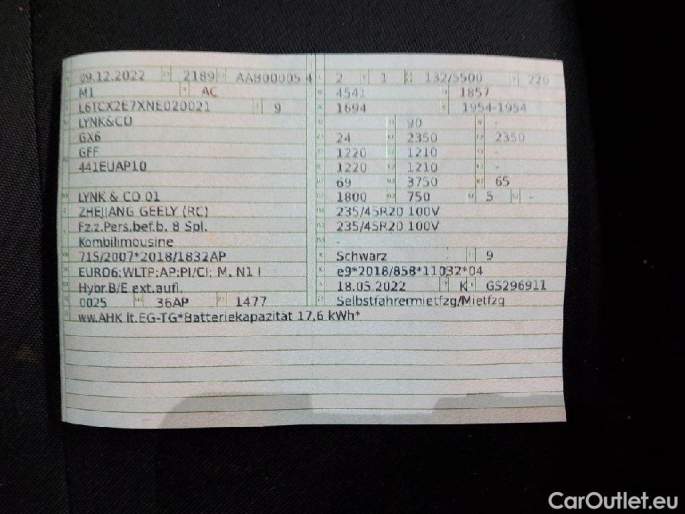 09.12.2022 2189 AAB00005 4 2 1 132/5500 220
M1 AC 4541 1857
L6TCX2E7XNE020021 9 1694 1954-1954
LYNK&CO - 90 -
GX6 24 2350 2350
GFF 1220 1210 -
441EUAP10 1220 1210 -
69 3750 65
LYNK & CO 01 1800 750 5 -
ZHEJIANG GEELY (RC) 235/45R20 100V
Fz.z.Pers.bef.b. 8 Spl. 235/45R20 100V
Kombilimousine -
715/2007*2018/1832AP Schwarz 9
EURO6;WLTP;AP;PI/CI; M, N1 I e9*2018/858*11032*04
Hybr.B/E ext.aufl. 18.05.2022 K GS296911
0025 36AP 1477 Selbstfahrermietfzg/Mietfzg
ww.AHK lt.EG-TG*Batteriekapazität 17,6 kWh*
CarOutlet.eu